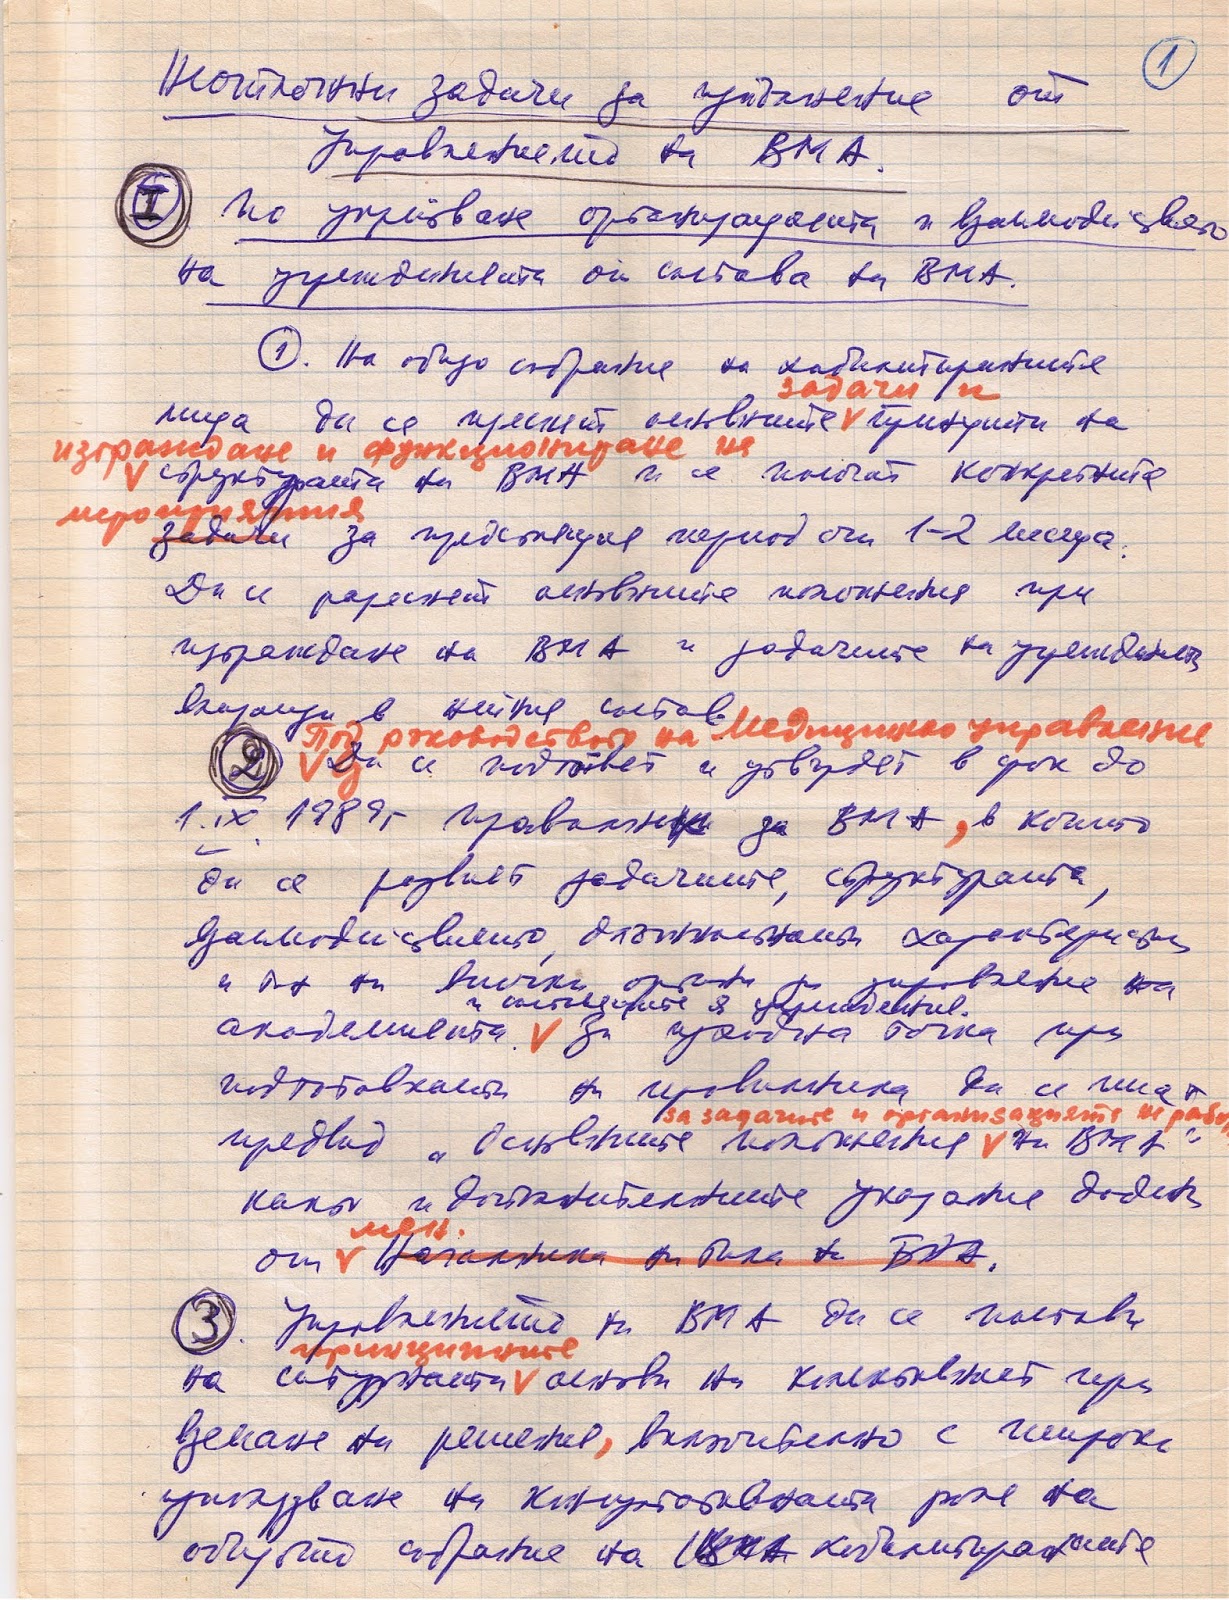 1
Неотложни задачи за изпълнение от
Управлението на ВМА.
I По укрепване организацията и взаимодействието
на учрежденията от състава на ВМА.
1. На общо събрание на хабилитираните
задачи и
лица да се изяснят основните принципи на
изграждане и функциониране на
структурата на ВМА и се посочат конкретните
мероприятия
задачи за предстоящия период от 1-2 месеца.
Да се разяснят основните положения при
изграждане на ВМА и задачите на учрежденията
влизащи в нейния състав
Под ръководството на Медицинско управление
2 Да се подготвят и утвърдят в срок до
1.IX.1989г. правилник за ВМА, в който
да се развият задачите, структурата,
взаимодействието, длъжностните характеристики
и пр. на всички органи за управление на
и състоящите я учреждения.
академията. За изходна точка при
подготовката на правилника да се имат
за задачите и организацията на работа
предвид "Основните положения на ВМА"
както и допълнителните указания дадени
мен.
от Началника на тила на БНА.
3. Управлението на ВМА да се постави
принципите
на сигурната основа на колективност при
вземане на решения, включително с широко
използване на консултативната роля на
общото събрание на хабилитираните